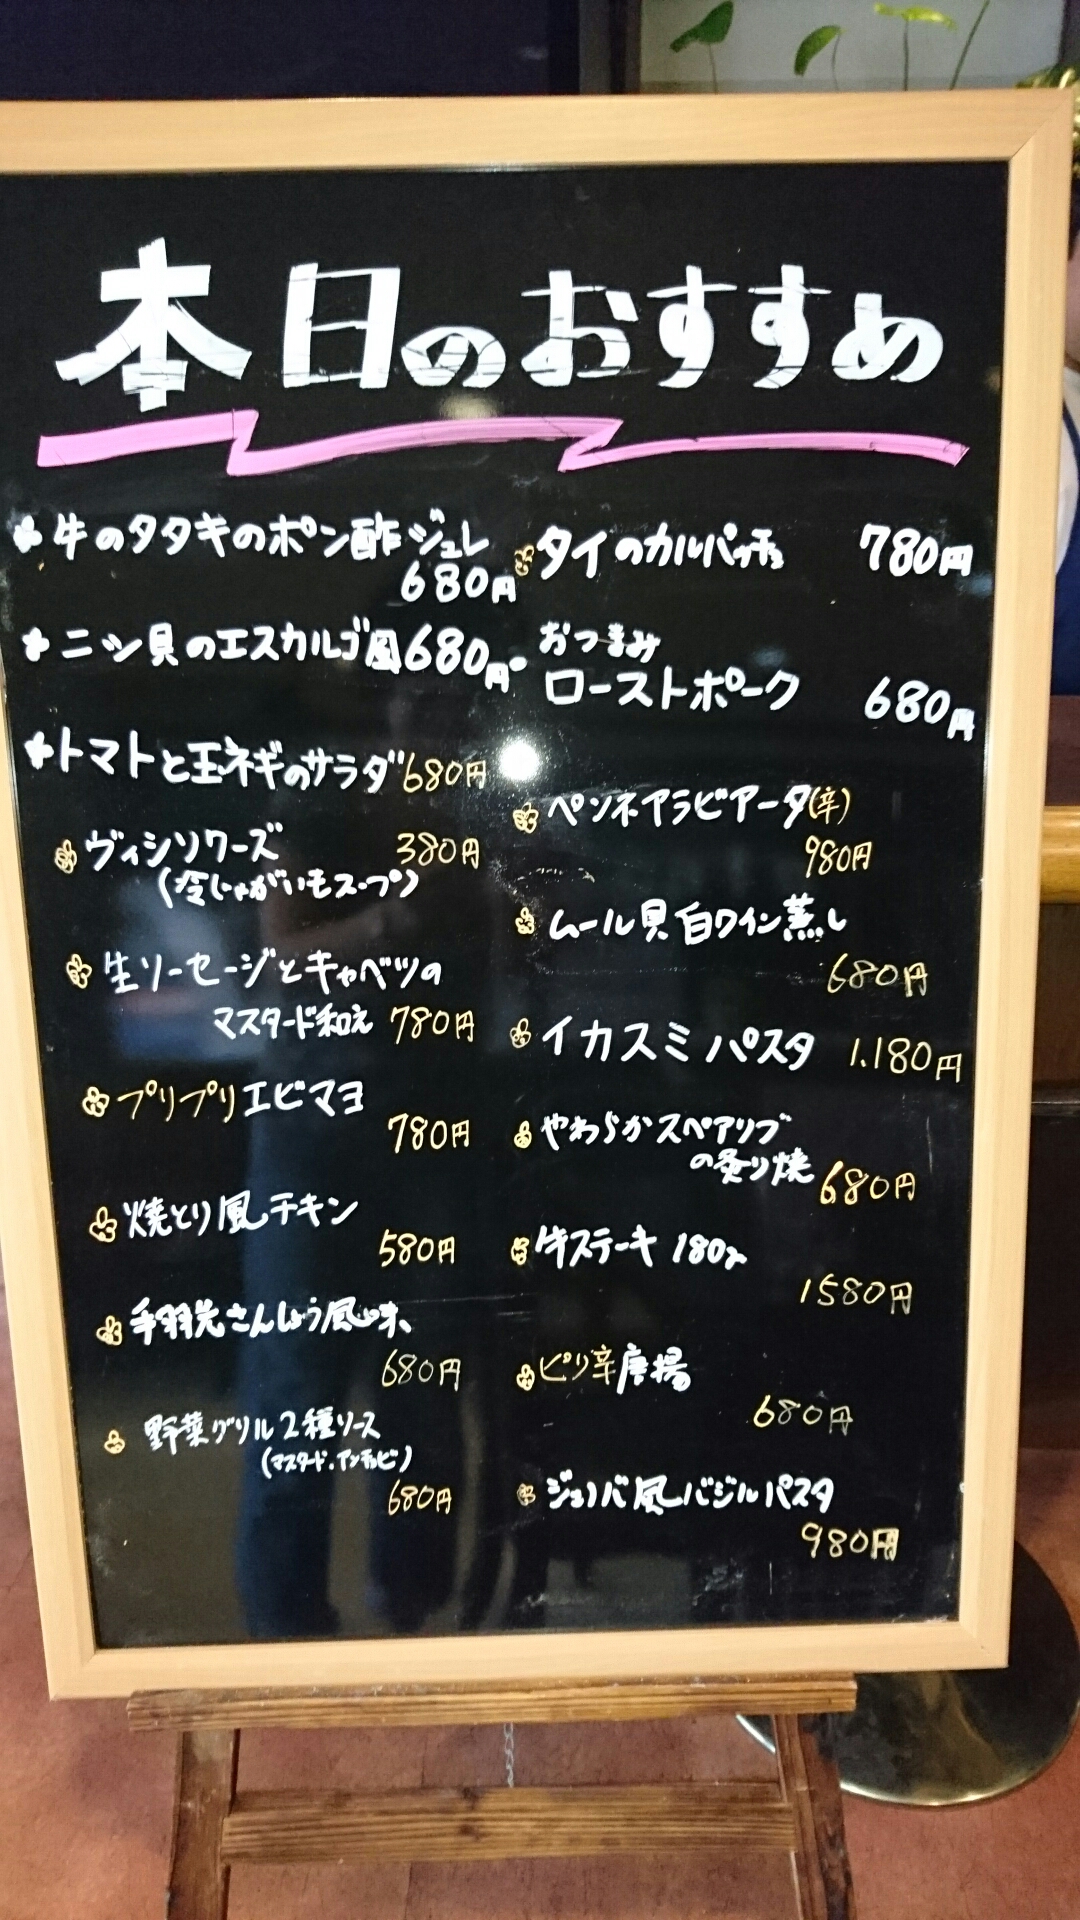 本日のおすすめ
牛のタタキのポン酢ジュレ
680円
ニシ貝のエスカルゴ風680円
トマトと玉ネギのサラダ 680円
ヴィシソワーズ 380円
(冷じゃがいもスープ)
生ソーセージとキャベツの
マスタード和え 780円
プリプリエビマヨ
780円
焼とり風チキン
580円
手羽先さんしょう風味
680円
野菜グリル2種ソース
(マスタード・アンチョビ)
680円
タイのカルパッチョ 780円
おつまみ
ローストポーク 680円
ペンネアラビアータ(辛)
980円
ムール貝白ワイン蒸し
680円
イカスミパスタ 1.180円
やわらかスペアリブ
の炙り焼 680円
牛ステーキ 180g
1580円
ピリ辛唐揚
680円
ジェノバ風バジルパスタ
980円